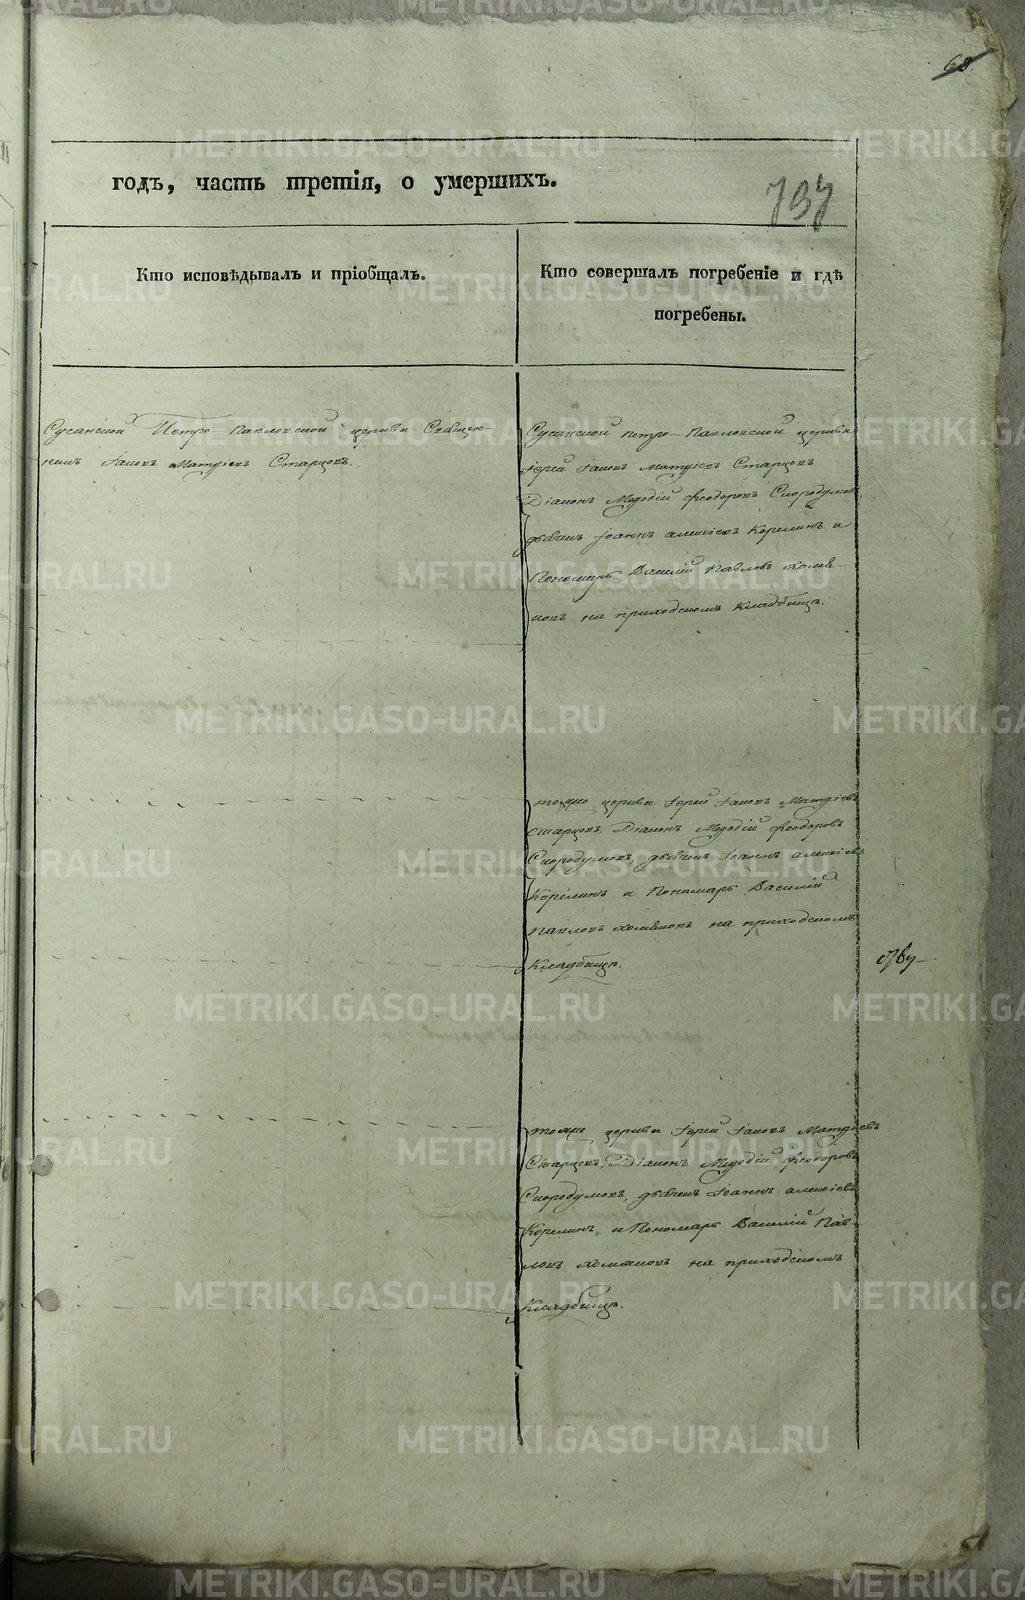 68.
годъ, часть третія, о умершихъ.
737
Кто исповѣдывалъ и пріобщалъ.
Кто совершалъ погребеніе и гдѣ
погребены.
Сусанской Петро Павловской церкви Священ-
никъ Іаковъ Матѳіевъ Старцовъ.
Сусанской Петро-Павловской церкви
Іерей Іаковъ Матѳіевъ Старцовъ
Діаконъ Меѳодій Ѳеодоровъ Скородумовъ
дьячекъ Іоаннъ Алексіевъ Корелинъ и
Пономарь Василій Павловъ Хомя-
ковъ на приходскомъ кладбищѣ.
тояже церкви Іерей Іаковъ Матѳіевъ
Старцовъ, Діаконъ Меѳодій Ѳеодоровъ
Скородумовъ, дьячекъ Іоаннъ Алексіевъ
Корелинъ и Пономарь Василій
Павловъ Хомяковъ на приходскомъ
Кладбищѣ.
тояже церкви Іерей Іаковъ Матѳіевъ
Старцовъ, Діаконъ Меѳодій Ѳеодоровъ
Скородумовъ, дьячекъ Іоаннъ Алексіевъ
Корелинъ, и Пономарь Василій Пав-
ловъ Хомяковъ на приходскомъ
Кладбищѣ.
METRIKI.GASO-URAL.RU